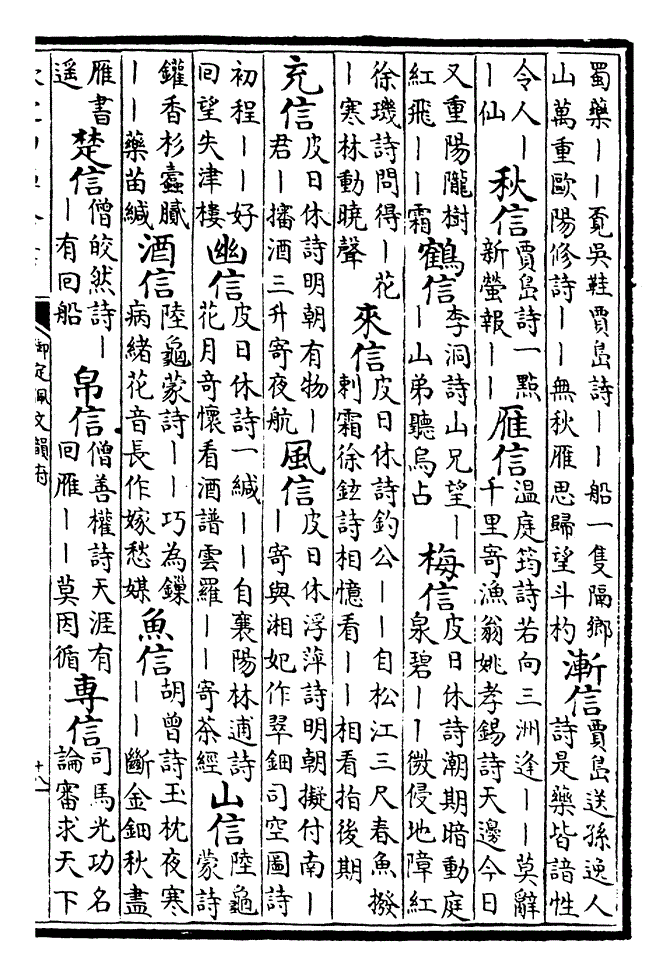 蜀藥丨丨覔吳鞋賈島詩丨丨船一隻隔鄉
山萬重歐陽修詩丨丨無秋雁思歸望斗杓
漸信
賈島送孫逸人
詩是藥皆諳性
令人丨
丨仙
秋信
賈島詩一點
新螢報丨丨
雁信
温庭筠詩若向三洲逢丨丨莫辭
千里寄漁翁姚孝錫詩天邊今日
又重陽隴樹
紅飛丨丨霜
鶴信
李洞詩山兄望丨
丨山弟聽烏占
梅信
皮日休詩潮期暗動庭
泉碧丨丨微侵地障紅
徐璣詩問得丨花
丨寒林動曉聲
來信
皮日休詩釣公丨丨自松江三尺春魚撥
剌霜徐鉉詩相憶看丨丨相看指後期
充信
皮日休詩明朝有物丨
君丨㩙酒三升寄夜航
風信
皮日休浮萍詩明朝擬付南丨
丨寄與湘妃作翠鈿司空圖詩
初程丨丨好
回望失津樓
幽信
皮日休詩一緘丨丨自襄陽林逋詩
花月竒懷看酒譜雲羅丨丨寄茶經
山信
陸龜
蒙詩
鑵香杉蠧膩
丨丨藥苗緘
酒信
陸龜蒙詩丨丨巧為鏁
病緒花音長作嫁愁媒
魚信
胡曾詩玉枕夜寒
丨丨斷金鈿秋盡
雁書
遥
楚信
僧皎然詩丨
丨有回船
帛信
僧善權詩天涯有
回雁丨丨莫因循
専信
司馬光功名
論審求天下
御定佩文韻府
十八